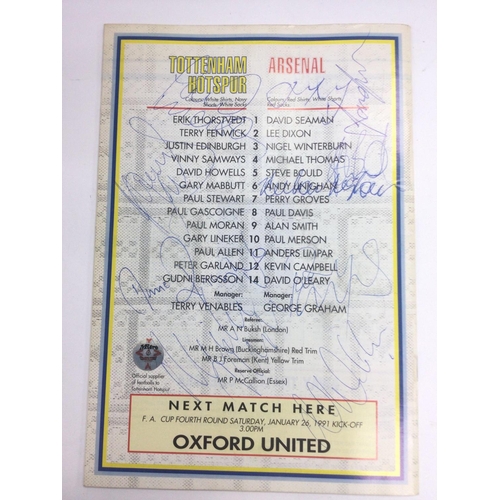 TOTTENHAM HOTSPUR ARSENAL
Colours: White Shirts, Navy Shorts, White Socks
Colours: Red Shirts, White Shorts, Red Socks
ERIK THORSTVEDT 1 DAVID SEAMAN
TERRY FENWICK 2 LEE DIXON
JUSTIN EDINBURGH 3 NIGEL WINTERBURN
VINNY SAMWAYS 4 MICHAEL THOMAS
DAVID HOWELLS 5 STEVE BOULD
GARY MABBUTT 6 ANDY LINIGHAN
PAUL STEWART 7 PERRY GROVES
PAUL GASCOIGNE 8 PAUL DAVIS
PAUL MORAN 9 ALAN SMITH
GARY LINEKER 10 PAUL MERSON
PAUL ALLEN 11 ANDERS LIMPAR
PETER GARLAND 12 KEVIN CAMPBELL
GUDNI BERGSSON 14 DAVID O'LEARY
Manager: Manager:
TERRY VENABLES GEORGE GRAHAM
Referee:
MR A N Buksh (London)
Linesmen:
MR M H Brown (Buckinghamshire) Red Trim
MR B J Foreman (Kent) Yellow Trim
Reserve Official:
MR P McCallion (Essex)
Mitre
Official supplier
of footballs to
Tottenham Hotspur
NEXT MATCH HERE
F. A. CUP FOURTH ROUND SATURDAY, JANUARY 26, 1991 KICK-OFF
3.00PM
OXFORD UNITED